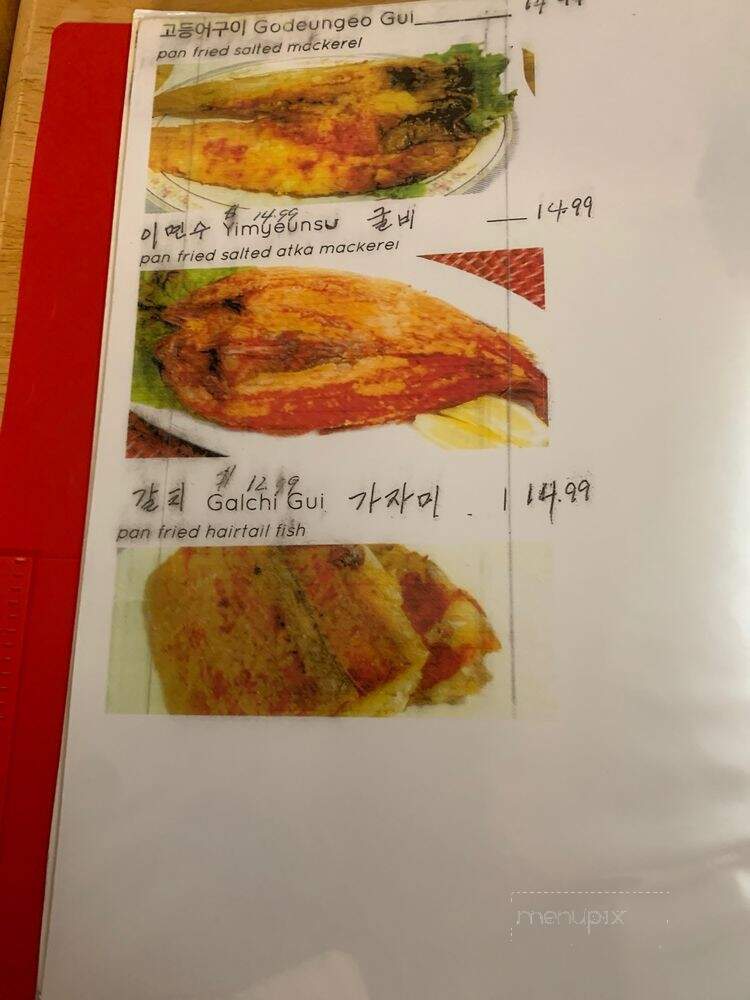 고등어구이 Godeungeo Gui 14.99
pan fried salted mackerel
$ 14.99
이면수 Yimyeunsu 굴비 14.99
pan fried salted atka mackerel
# 12.99
갈치 Galchi Gui 가자미 . 14.99
pan fried hairtail fish
menupix